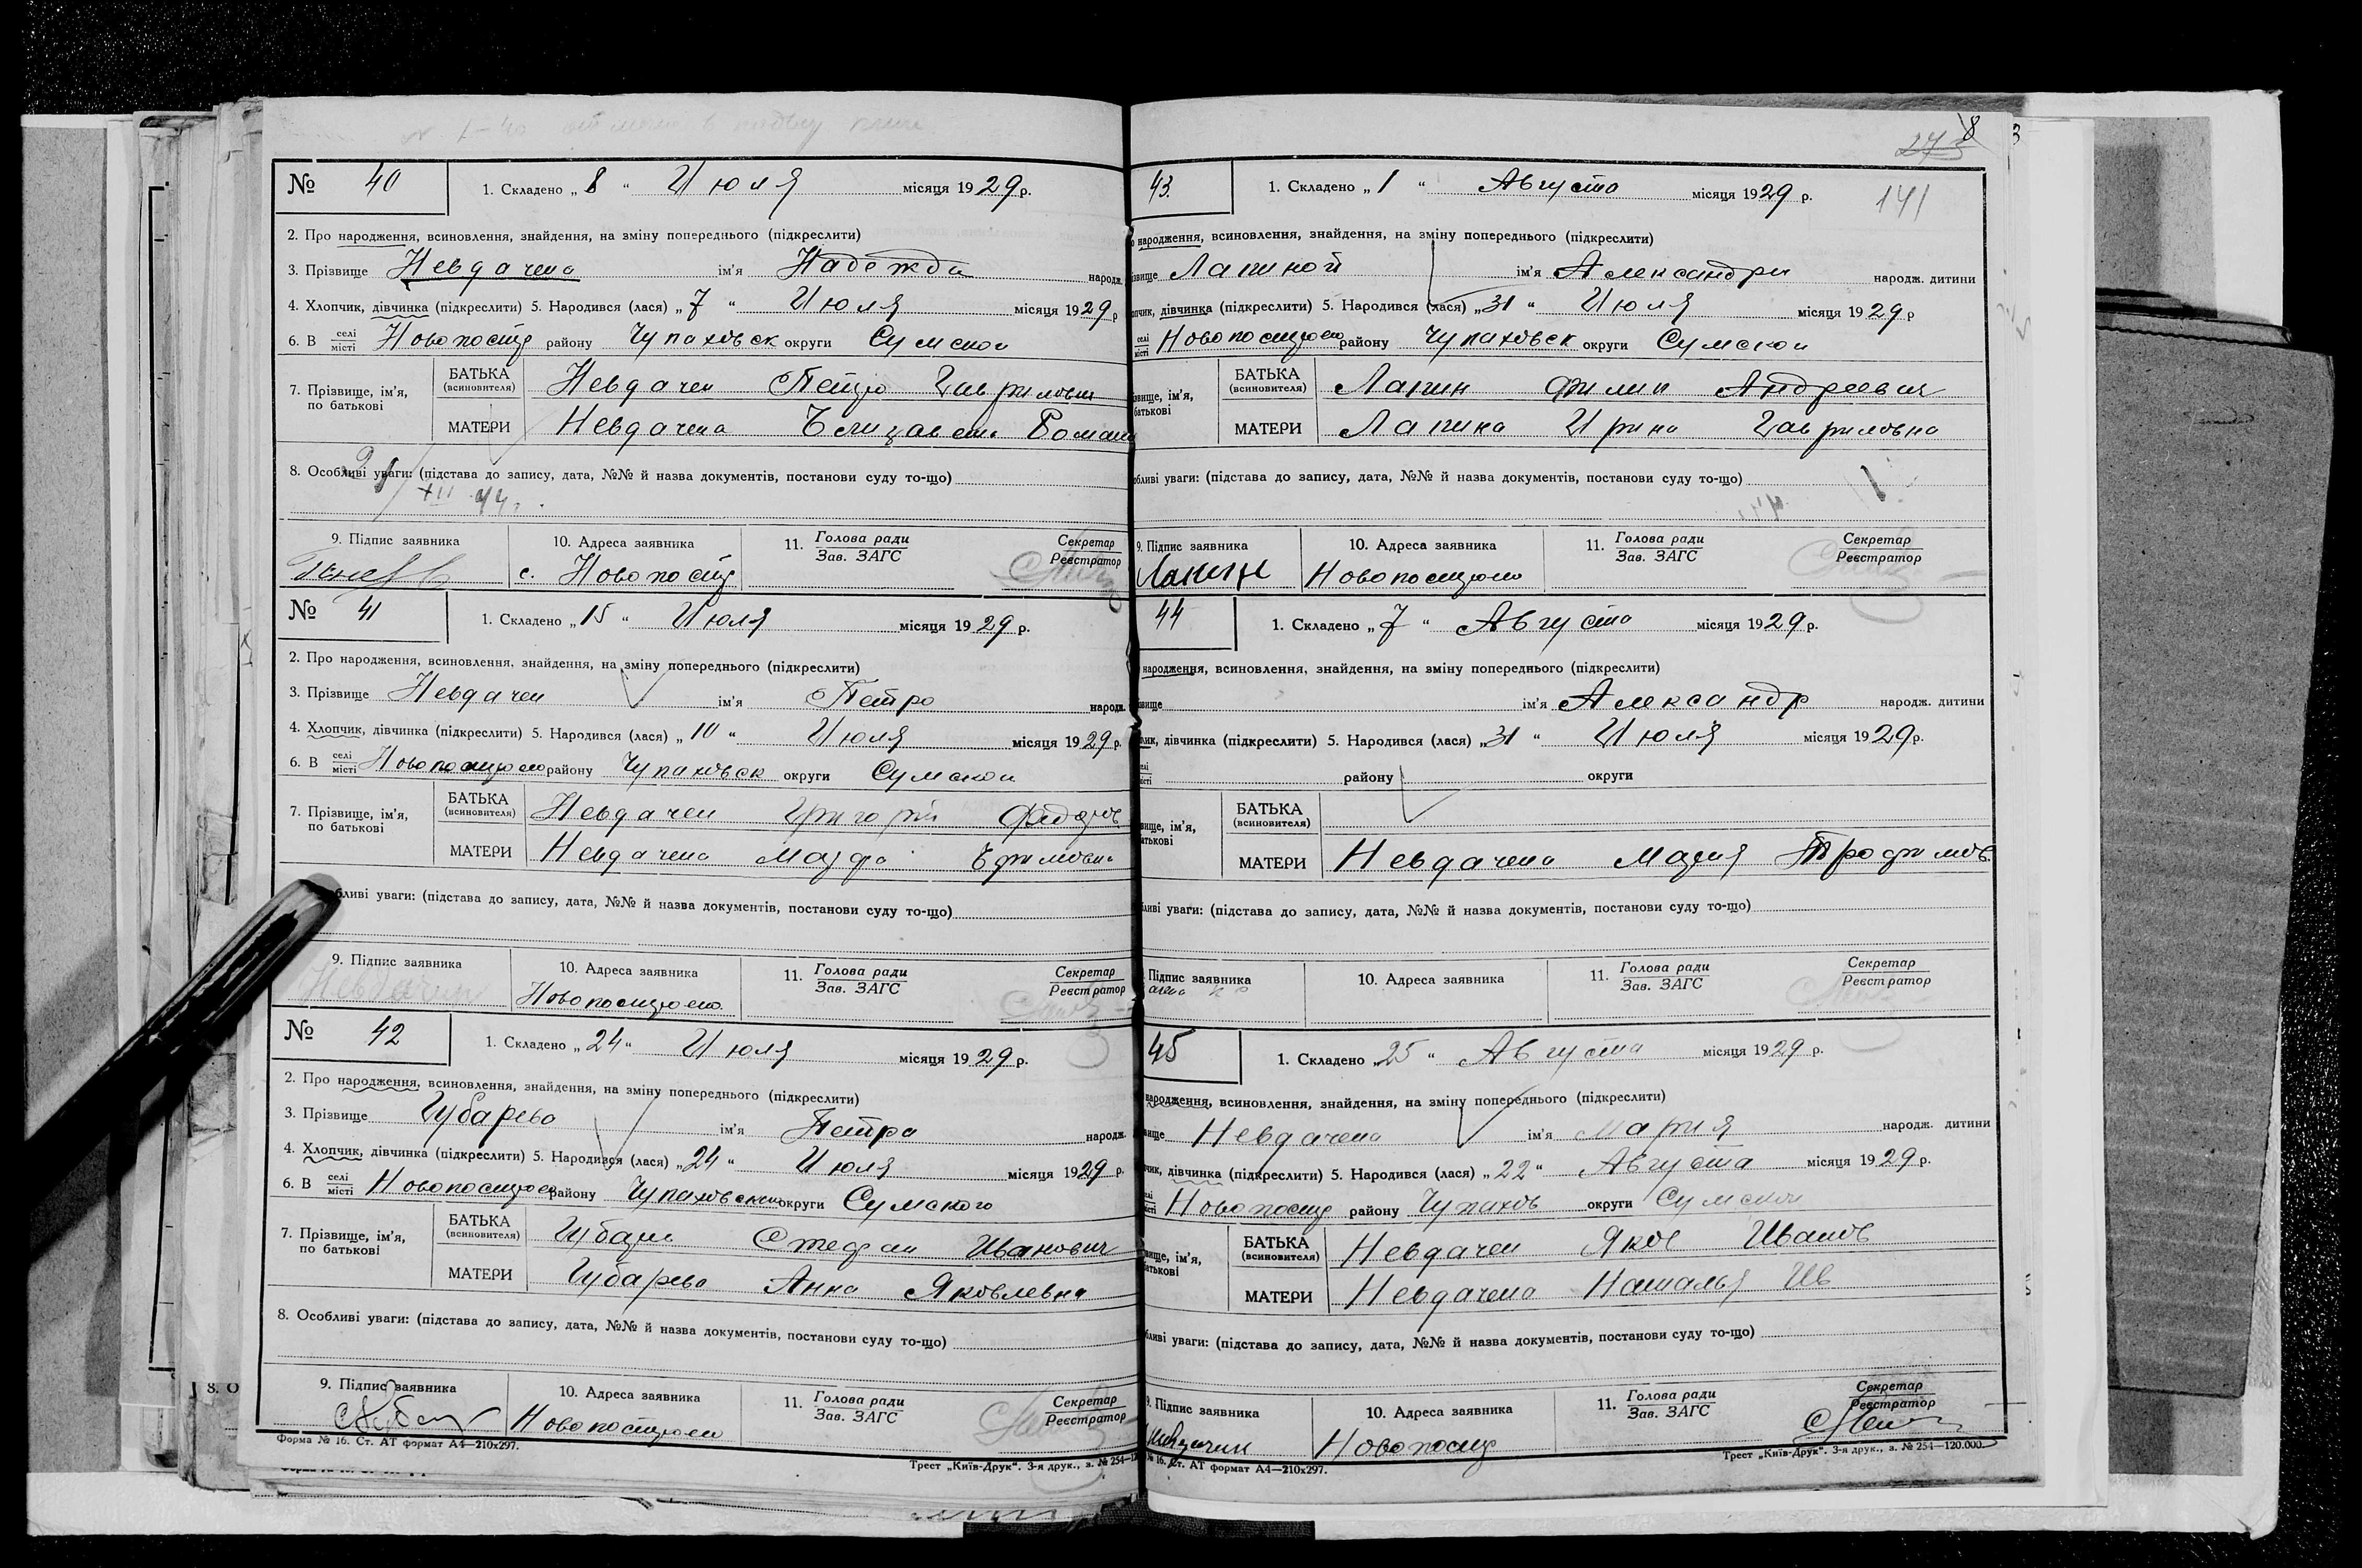 № 40 1. Складено „ 8 “ Июля місяця 1929 р.
2. Про народження, всиновлення, знайдення, на зміну попереднього (підкреслити)
3. Прізвище Невдачена ім'я Надежда народж.
4. Хлопчик, дівчинка (підкреслити) 5. Народився (лася) „ 7 “ Июля місяця 1929 р
6. В селі місті Новопостро району Чупаховск округи Сумской
7. Прізвище, ім'я, по батькові
БАТЬКА (всиновителя) Невдачен Петро Гаврилович
МАТЕРИ Невдачена Елизавета Роман
8. Особливі уваги: (підстава до запису, дата, №№ й назва документів, постанови суду то-що)
XII 44 г.
9. Підпис заявника 10. Адреса заявника 11. Голова ради Зав. ЗАГС Секретар Реєстратор
с. Новопостр
№ 41 1. Складено „ 15 “ Июля місяця 1929 р.
2. Про народження, всиновлення, знайдення, на зміну попереднього (підкреслити)
3. Прізвище Невдачен ім'я Петро народж.
4. Хлопчик, дівчинка (підкреслити) 5. Народився (лася) „ 10 “ Июля місяця 1929 р.
6. В селі місті Новопостроено району Чупаховск округи Сумской
7. Прізвище, ім'я, по батькові
БАТЬКА (всиновителя) Невдачен Григорій Федоров
МАТЕРИ Невдачена Марфа Ефимовна
бливі уваги: (підстава до запису, дата, №№ й назва документів, постанови суду то-що)
9. Підпис заявника 10. Адреса заявника 11. Голова ради Зав. ЗАГС Секретар Реєстратор
Невдачин Новопостроено
№ 42 1. Складено „ 24 “ Июля місяця 1929 р.
2. Про народження, всиновлення, знайдення, на зміну попереднього (підкреслити)
3. Прізвище Губарева ім'я Петра народж.
4. Хлопчик, дівчинка (підкреслити) 5. Народився (лася) „ 24 “ Июля місяця 1929 р.
6. В селі місті Новопостроен району Чупаховского округи Сумского
7. Прізвище, ім'я, по батькові
БАТЬКА (всиновителя) Губарев Стефан Иванович
МАТЕРИ Губарева Анна Яковлевна
8. Особливі уваги: (підстава до запису, дата, №№ й назва документів, постанови суду то-що)
9. Підпис заявника 10. Адреса заявника 11. Голова ради Зав. ЗАГС Секретар Реєстратор
Новопостроен
Форма № 16. Ст. АТ формат А4—210х297.
Трест „Київ-Друк“. 3-я друк., з. № 254—12
8
273
43. 1. Складено „ 1 “ Августа місяця 1929 р. 141
народження, всиновлення, знайдення, на зміну попереднього (підкреслити)
звище Лапиной ім'я Александри народж. дитини
пчик, дівчинка (підкреслити) 5. Народився (лася) „ 31 “ Июля місяця 1929 р
селі місті Новопостроено району Чупаховск округи Сумской
звище, ім'я, батькові
БАТЬКА (всиновителя) Лапин Филип Андреевич
МАТЕРИ Лапина Ирина Гавриловна
обливі уваги: (підстава до запису, дата, №№ й назва документів, постанови суду то-що)
9. Підпис заявника 10. Адреса заявника 11. Голова ради Зав. ЗАГС Секретар Реєстратор
Лапин Новопостроено
44 1. Складено „ 7 “ Августа місяця 1929 р.
народження, всиновлення, знайдення, на зміну попереднього (підкреслити)
звище ім'я Александр народж. дитини
пчик, дівчинка (підкреслити) 5. Народився (лася) „ 31 “ Июля місяця 1929 р.
селі місті району округи
звище, ім'я, батькові
БАТЬКА (всиновителя)
МАТЕРИ Невдачена Мария Трофимов.
бливі уваги: (підстава до запису, дата, №№ й назва документів, постанови суду то-що)
Підпис заявника 10. Адреса заявника 11. Голова ради Зав. ЗАГС Секретар Реєстратор
45 1. Складено „ 25 “ Августа місяця 1929 р.
народження, всиновлення, знайдення, на зміну попереднього (підкреслити)
звище Невдачена ім'я Мария народж. дитини
чик, дівчинка (підкреслити) 5. Народився (лася) „ 22 “ Августа місяця 1929 р.
селі місті Новопостр району Чупахов округи Сумской
звище, ім'я, батькові
БАТЬКА (всиновителя) Невдачен Яков Иванов
МАТЕРИ Невдачена Наталья Ив
бливі уваги: (підстава до запису, дата, №№ й назва документів, постанови суду то-що)
9. Підпис заявника 10. Адреса заявника 11. Голова ради Зав. ЗАГС Секретар Реєстратор
Новопостр
№ 16. Ст. АТ формат А4—210х297.
Трест „Київ-Друк“. 3-я друк., з. № 254—120.000.